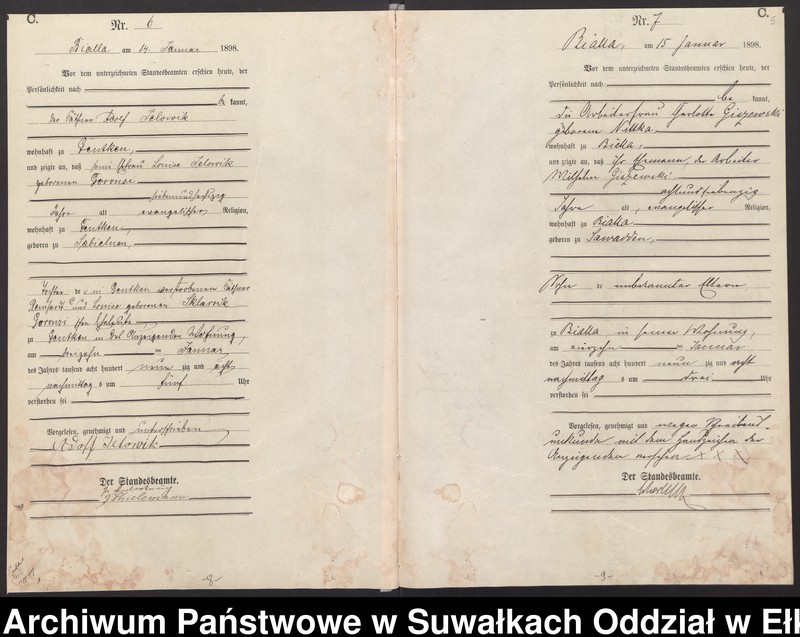 C.
Nr. 6
Bialla am 14 Januar 1898.
Vor dem unterzeichneten Standesbeamten erschien heute, der
Persönlichkeit nach
be kannt,
der Käthner Adolf Jelowik
wohnhaft zu Gentken,
und zeigte an, daß seine Ehefrau Louise Jelowik
geborenen Goronzi
siebenundsechzig
Jahre alt evangelischer Religion,
wohnhaft zu Gentken,
geboren zu
Tochter der in Gentken verstorbenen Käthner
und Louise geborenen Sklarzik
Goronzi Eheleute
zu Gentken in des Anzeigenden Wohnung,
am dreizehn Januar
des Jahres tausend acht hundert neun zig und acht
nachmittag s um fünf Uhr
verstorben sei
Vorgelesen, genehmigt und unterschrieben
Adolf Jelowik
Der Standesbeamte.
In Vertretung
Thielemann
-8-
C.
5
Nr. 7
Bialla, am 15 Januar 1898.
Vor dem unterzeichneten Standesbeamten erschien heute, der
Persönlichkeit nach
be kannt,
die Arbeiterfrau Charlotte Gizewski
geborene Nittka
wohnhaft zu Bialla,
und zeigte an, daß ihr Ehemann, der Arbeiter
Wilhelm Gizewski
achtundsiebenzig
Jahre alt, evangelischer Religion,
wohnhaft zu Bialla
geboren zu Sawadden,
Sohn de unbekannter Eltern
zu Bialla in seiner Wohnung,
am vierzehn Januar
des Jahres tausend acht hundert neun zig und acht
nachmittag s um drei Uhr
verstorben sei
Vorgelesen, genehmigt und wegen Schreibens-
unkunde mit dem Handzeichen der
Anzeigenden versehen. X X X
Der Standesbeamte.
-9-
Archiwum Państwowe w Suwałkach Oddział w Ełk